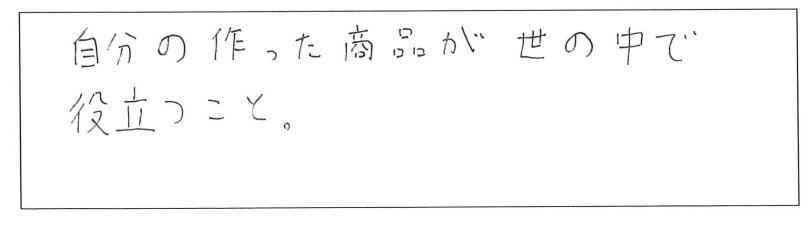 自分の作った商品が世の中で
役立つこと。